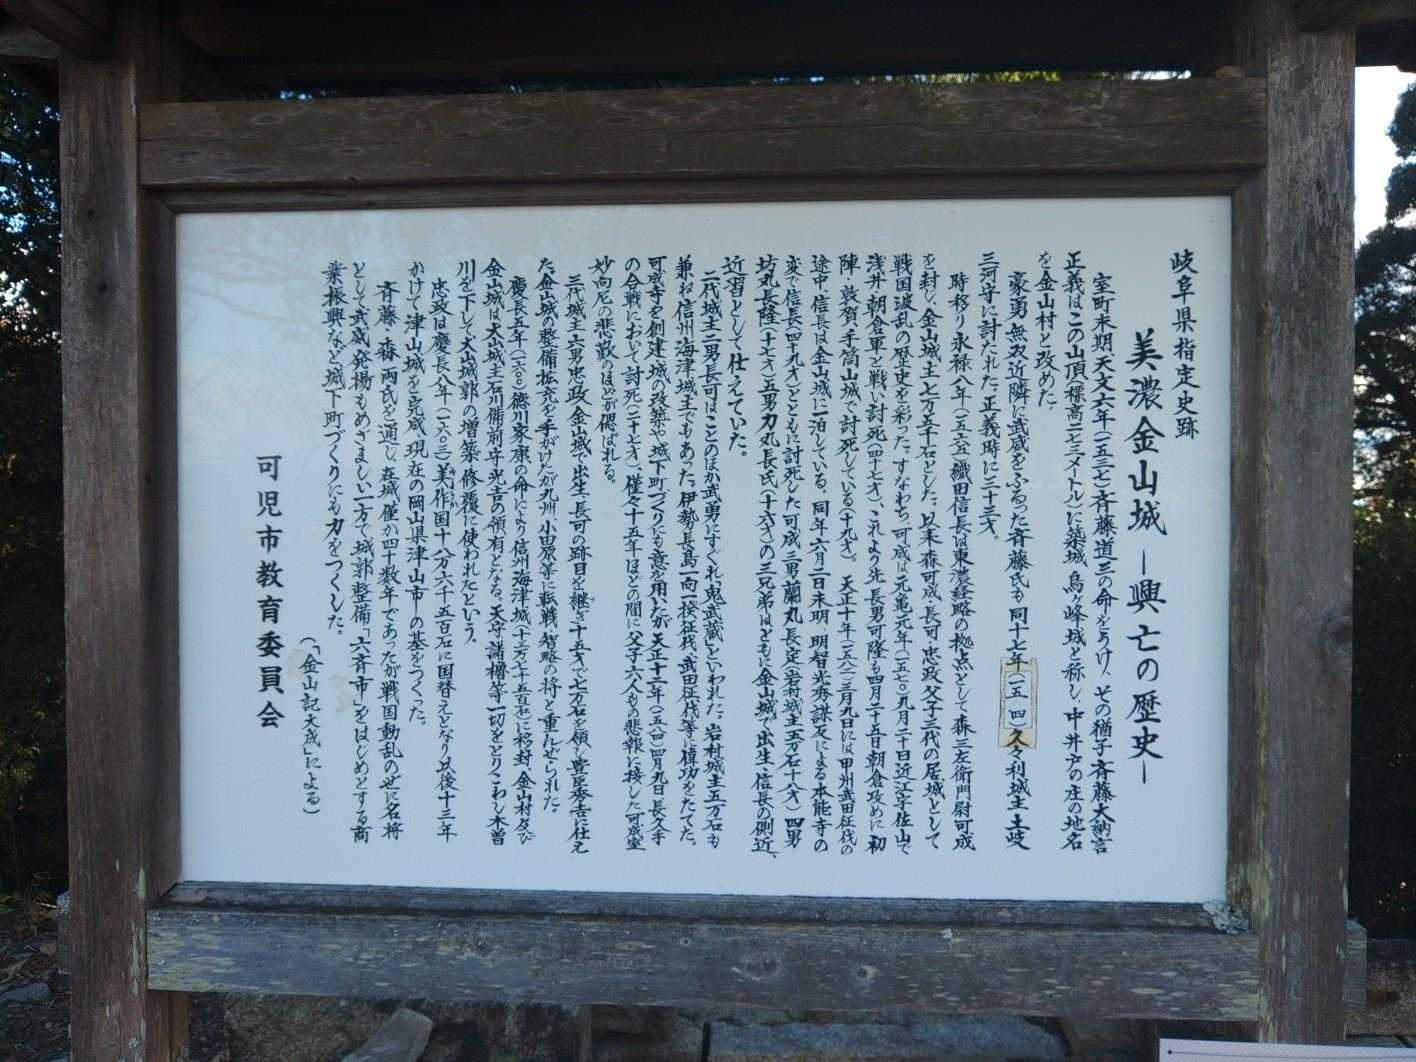 岐阜県指定史跡
美濃金山城 ―興亡の歴史―
室町末期天文六年(一五三七)斉藤道三の命をうけ、その猶子斉藤大納言
正義はこの山頂(標高二七三メートル)に築城、烏ケ峰城と称し、中井戸の庄の地名
を金山村と改めた。
豪勇、無双近隣に武威をふるった斉藤氏も同十七年(一五四 )久々利城主土岐
三河守に討たれた。正義時に三十三才。
時移り永禄八年(一五六五)織田信長は東濃経略の拠点として森三左衛門尉可成
を封し、金山城主七万五千石とした。以来森可成、長可、忠政父子三代の居城として
戦国波乱の歴史を彩った。すなわち、可成は元亀元年(一五七〇)九月二十日近江宇佐山で
浅井、朝倉軍と戦い討死(四十七才)、これより先、長男可隆も四月二十五日朝倉攻めに初
陣、敦賀、手筒山城で討死している(十九才)。天正十年(一五八二)三月九日には甲州武田征伐の
途中、信長は金山城に一泊している。同年六月二日未明、明智光秀謀反による本能寺の
変で信長(四十九才)とともに討死した可成三男蘭丸長定(岩村城主五万石十八才)四男
坊丸長隆(十七才)五男力丸長氏(十六才)の三兄弟はともに金山城で出生、信長の側近、
近習として仕えていた。
二代城主二男長可はことのほか武勇にすぐれ「鬼武蔵」といわれた。岩村城主五万石も
兼ね信州海津城主でもあった。伊勢長島一向一揆征伐、武田征伐等に積功をたてた。
可成寺を創建、城の改築や城下町づくりにも意を用いたが天正十二年(一五八四)四月九日長久手
の合戦において討死(二十七才)、僅々十五年ほどの間に父子六人もの悲報に接した可成室
妙向尼の悲歎のほどが偲ばれる。
三代城主六男忠政、金山城で出生、長可の跡目を継ぎ十五才で七万石を領し豊臣秀吉に仕え
た。金山城の整備拡充を手がけたが九州、小田原等に転戦、智略の将と重んぜられた。
慶長五年(一六〇〇)徳川家康の命により信州海津城(十三万七千五百石)に移封、金山村及び
金山城は犬山城主石川備前守光吉の領有となる。天守、諸櫓等一切をとりこわし木曽
川を下して犬山城郭の増築、修復に使われたという。
忠政は慶長八年(一六〇三)美作国十八万六千五百石に国替えとなり以後十三年
かけて津山城を完成、現在の岡山県津山市の基をつくった。
斉藤、森両氏を通じ、在城僅か四十数年であったが戦国動乱の世に名将
として武威発揚もめざましい一方で城郭整備「六斉市」をはじめとする商
業振興など城下町づくりにも力をつくした。
(「金山記大成」による)
可児市教育委員会